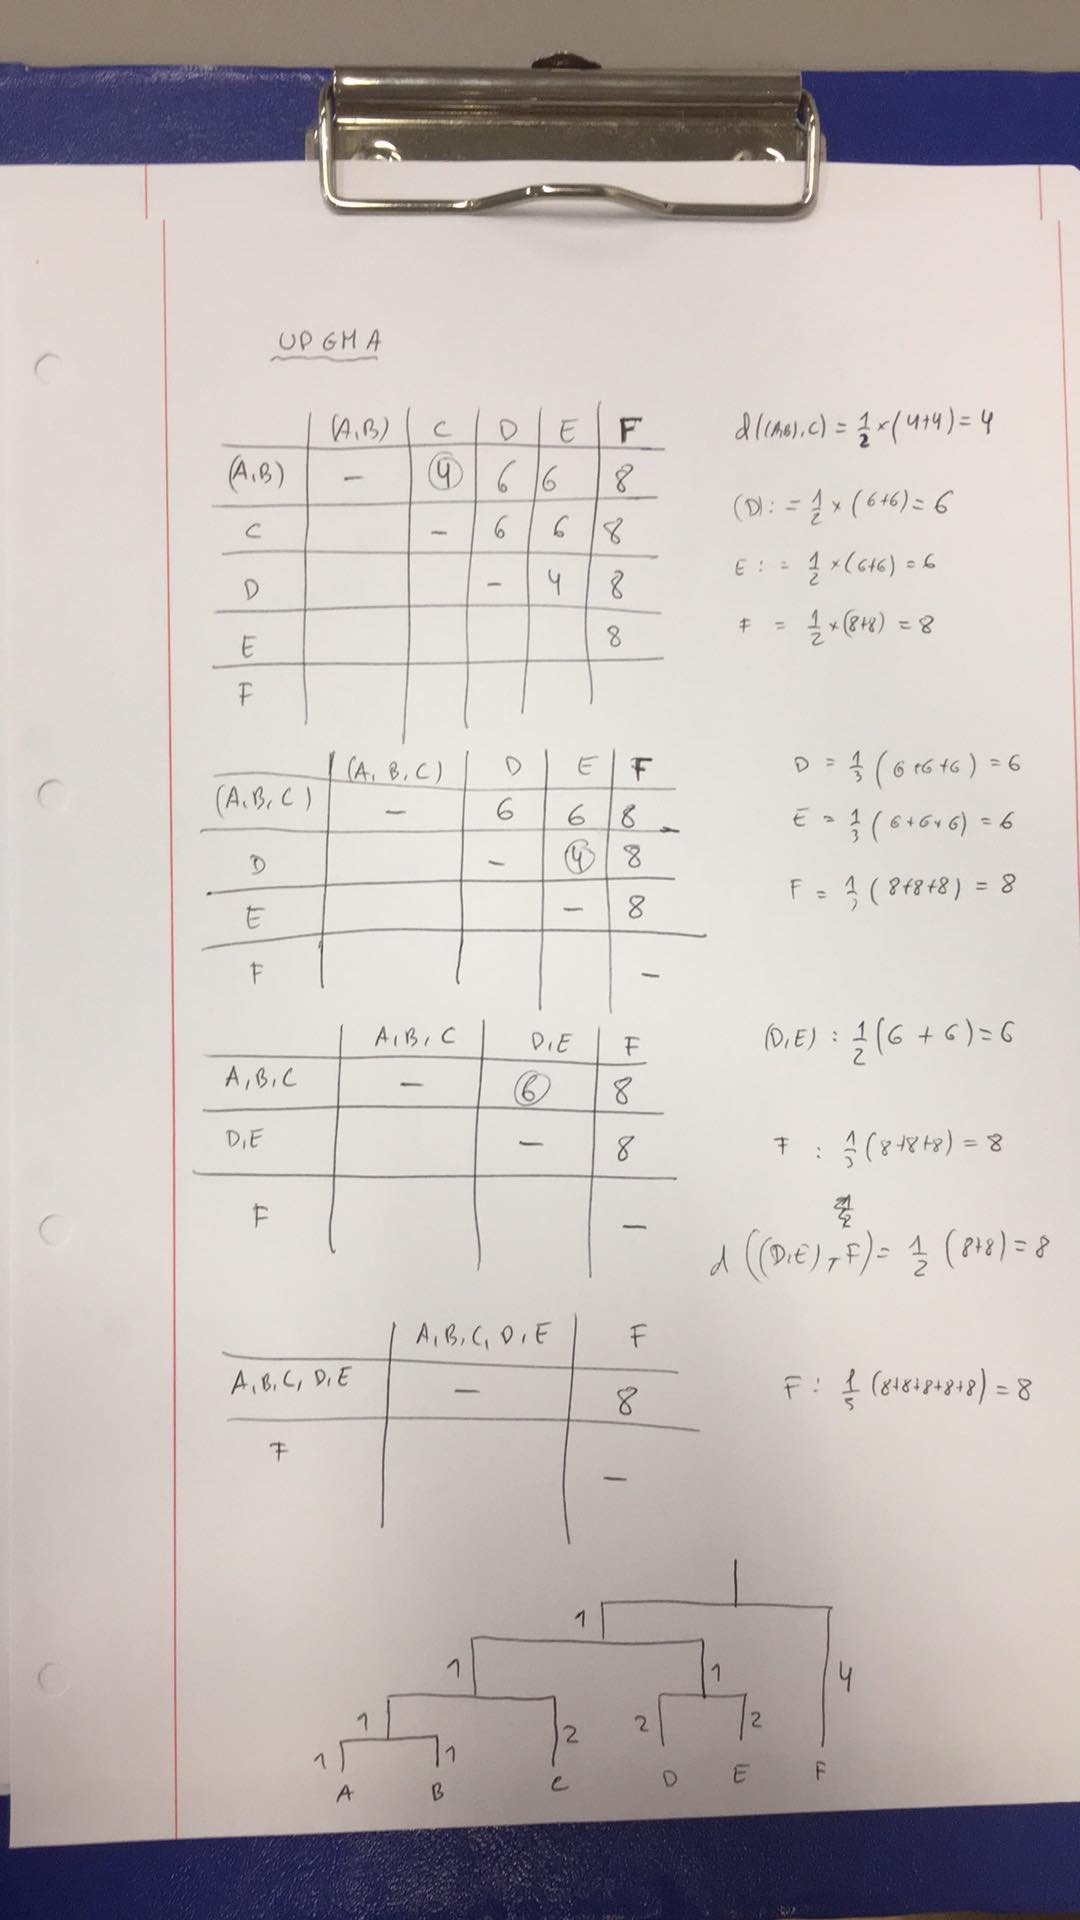 UPGMA
(A,B) C D E F
(A,B) - 4 6 6 8
C - 6 6 8
D - 4 8
E 8
F
d((A,B),C) = 1/2 × (4+4) = 4
(D): = 1/2 × (6+6) = 6
E : = 1/2 × (6+6) = 6
F = 1/2 × (8+8) = 8
(A, B, C) D E F
(A, B, C) - 6 6 8
D - 4 8
E - 8
F -
D = 1/3 (6+6+6) = 6
E = 1/3 (6+6+6) = 6
F = 1/3 (8+8+8) = 8
A, B, C D,E F
A, B, C - 6 8
D,E - 8
F -
(D,E) : 1/2 (6 + 6) = 6
F : 1/3 (8+8+8) = 8
d ((D,E), F) = 1/2 (8+8) = 8
A, B, C, D, E F
A, B, C, D, E - 8
F -
F : 1/5 (8+8+8+8+8) = 8
1
1 1 4
1 2 2 2
1 1
A B C D E F